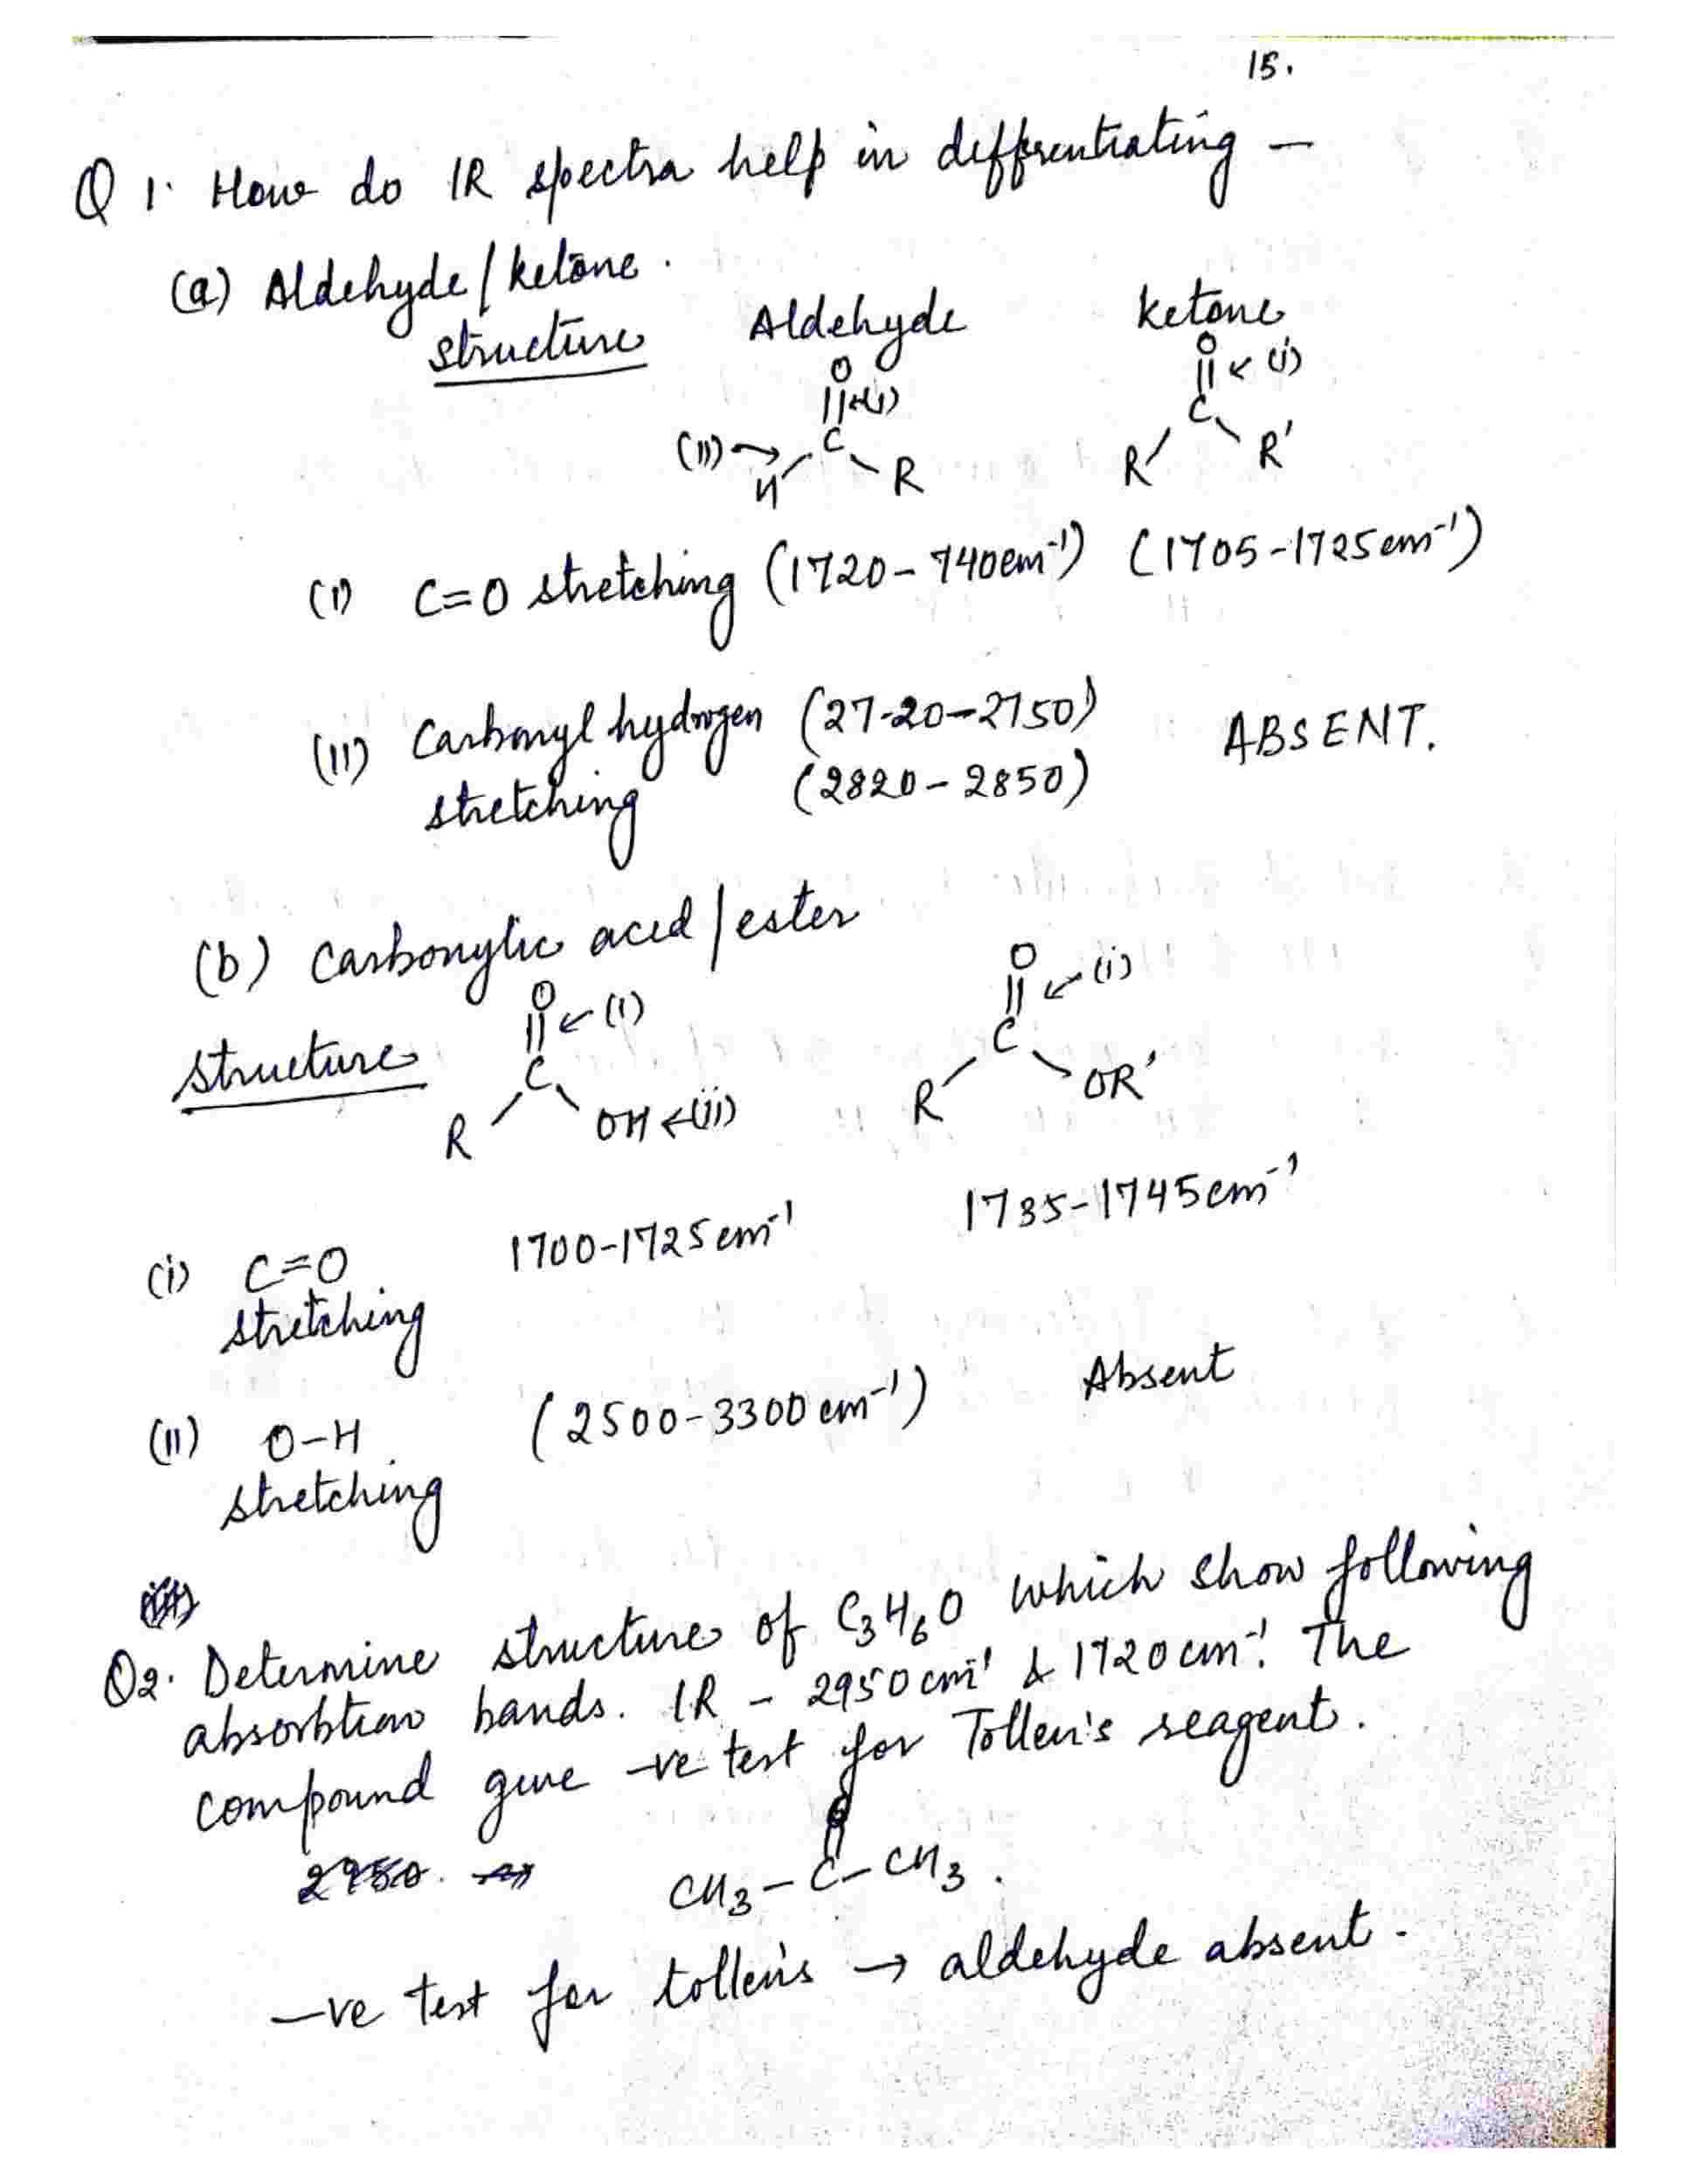 15.
Q 1. How do IR spectra help in diffrentiating —
(a) Aldehyde/ketone.
structure Aldehyde ketone
O O
||←(i) || ← (i)
(ii) → C C
H R R R'
(i) C=O stretching (1720-740cm⁻¹) (1705-1725cm⁻¹)
(ii) Carbonyl hydrogen (27-20-2750) ABSENT.
stretching (2820-2850)
(b) Carbonylic acid/ester
O ←(i) O ←(i)
|| ||
structure C C
R OH ←(ii) R OR'
(i) C=O 1700-1725cm⁻¹ 1735-1745cm⁻¹
stretching
(ii) O-H (2500-3300cm⁻¹) Absent
stretching
Q2. Determine structure of C₃H₆O which show following
absorbtion bands. IR - 2950cm⁻¹ & 1720cm⁻¹. The
compound give -ve test for Tollen's reagent.
2950. O
||
CH₃-C-CH₃.
-ve test for tollen's → aldehyde absent.